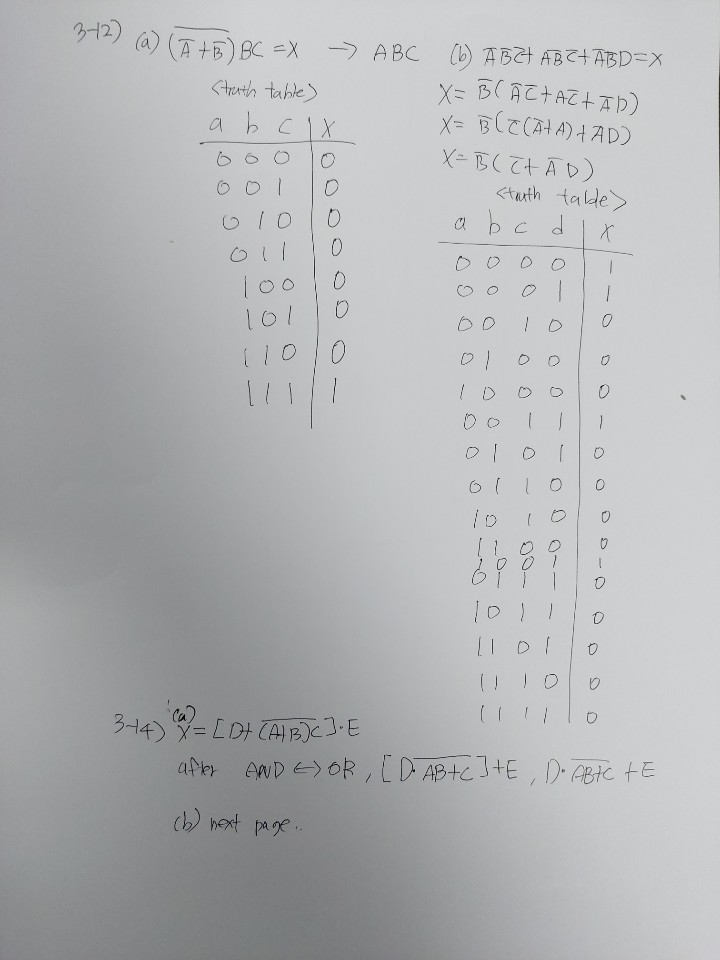 3-12) (a) (A̅+B̅)‾ BC = X → ABC
<truth table>
a b c | X
0 0 0 | 0
0 0 1 | 0
0 1 0 | 0
0 1 1 | 0
1 0 0 | 0
1 0 1 | 0
1 1 0 | 0
1 1 1 | 1
(b) A̅B̅C̅ + AB̅C̅ + A̅B̅D = X
X = B̅(A̅C̅ + AC̅ + A̅D)
X = B̅(C̅(A̅+A) + A̅D)
X = B̅(C̅ + A̅D)
<truth table>
a b c d | X
0 0 0 0 | 1
0 0 0 1 | 1
0 0 1 0 | 0
0 1 0 0 | 0
1 0 0 0 | 0
0 0 1 1 | 1
0 1 0 1 | 0
0 1 1 0 | 0
1 0 1 0 | 0
1 1 0 0 | 0
1 0 0 1 | 1
0 1 1 1 | 0
1 0 1 1 | 0
1 1 0 1 | 0
1 1 1 0 | 0
1 1 1 1 | 0
3-14) (a) X = [D+ (A+B)C‾]·E
after AND ↔ OR, [D· AB+C‾]+E, D· AB+C‾ + E
(b) next page..